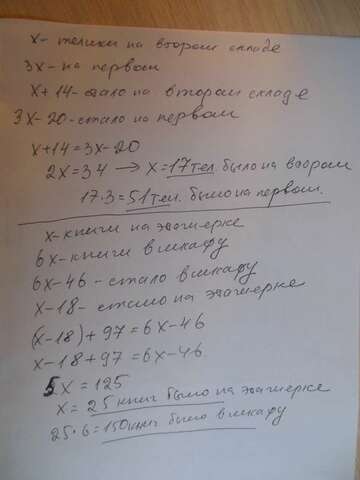 x- телики на втором складе
3x- на первом
x+14- стало на втором складе
3x-20- стало на первом
x+14=3x-20
2x=34 → x=17 тел. было на втором
17·3=51 тел. было на первом.
x- книги на этажерке
6x- книги в шкафу
6x-46- стало в шкафу
x-18- стало на этажерке
(x-18)+97=6x-46
x-18+97=6x-46.
5x=125
x=25 книг было на этажерке
25·6=150 книг было в шкафу